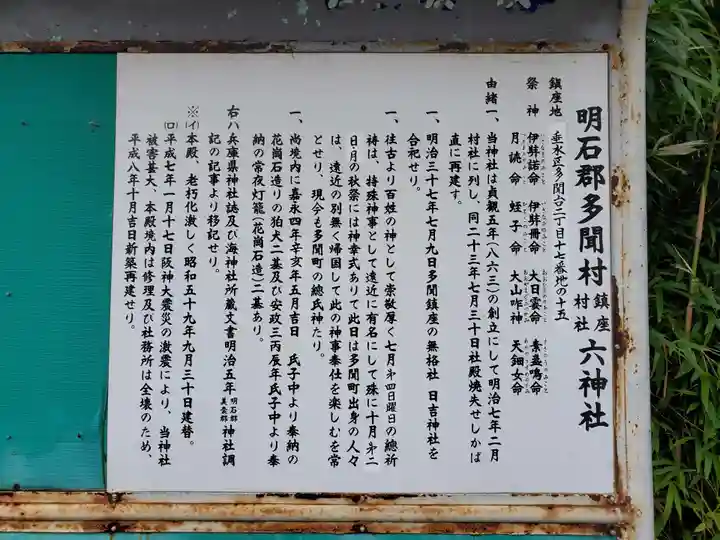 明石郡多聞村 鎮座 村社 六神社
鎮座地 垂水区多聞台二丁目十七番地の十五
祭神 伊弉諾命 伊弉冊命 大日霎命 素盞嗚命
月読命 蛭子命 大山咋神 天鈿女命
由緒一、当神社は貞観五年(八六三)の創立にして明治七年二月
村社に列し、同二十三年七月三十日社殿焼失せしかば
直に再建す。
一、明治三十七年七月九日多聞鎮座の無格社 日吉神社を
合祀せり。
一、往古より百姓の神として崇敬厚く七月第四日曜日の總祈
祷は、特殊神事として遠近に有名にして殊に十月第二
日月の秋祭には神幸式ありて此日は多聞町出身の人々
は、遠近の別無く帰国して此の神事奉仕を楽しむを常
とせり、現今も多聞町の總氏神たり。
一、尚境内に嘉永四年辛亥年五月吉日 氏子中より奉納の
花崗石造りの狛犬二基及び安政三丙辰年氏子中より奉
納の常夜灯籠(花崗石造)二基あり。
右ハ兵庫県神社誌及び海神社所蔵文書明治五年 明石郡 美嚢郡 神社調
記の記事より移記せり。
※(イ)本殿、老朽化激しく昭和五十九年九月三十日建替。
(ロ)平成七年一月十七日阪神大震災の激震により、当神社
被害甚大、本殿境内は修理及び社務所は全壊のため、
平成八年十月吉日新築再建せり。